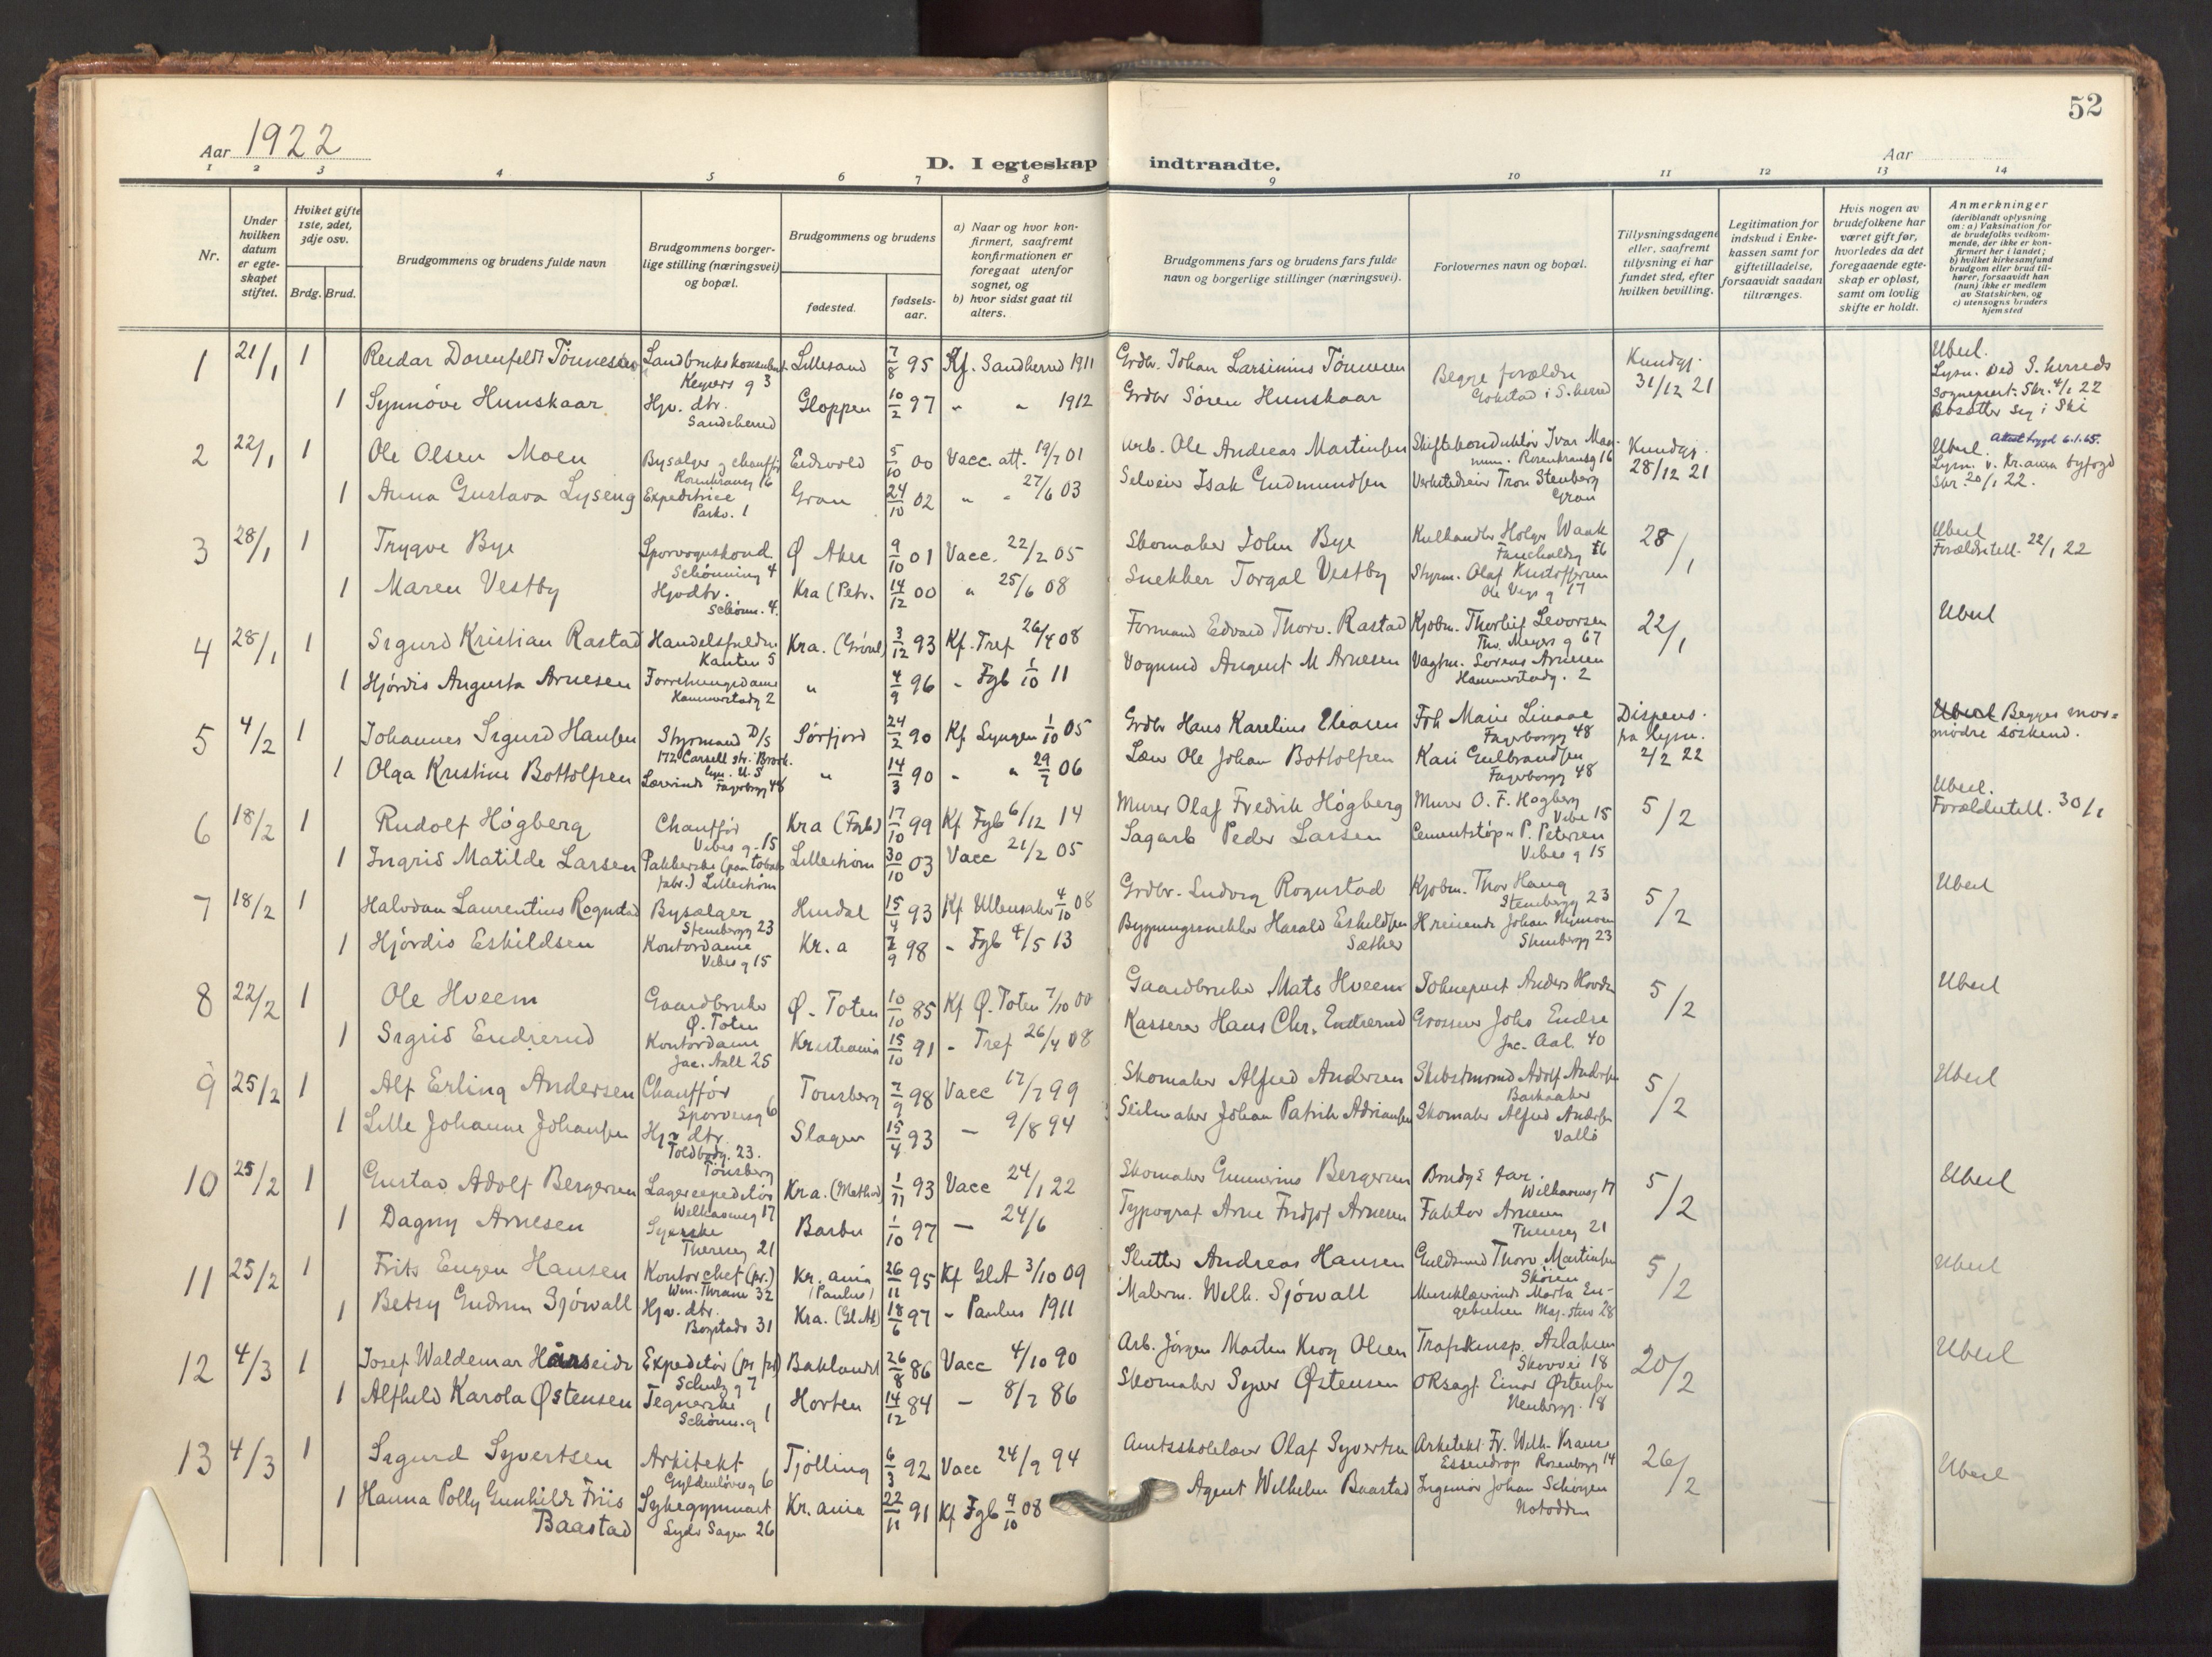 52
Aar 1922
D. I egteskap indtraadte.
Aar
1 2 3 4 5 6 7 8 9 10 11 12 13 14
Nr.
Under
hvilken
datum
er egte-
skapet
stiftet.
Hviket gifte
1ste, 2det,
3dje osv.
Brdg. Brud.
Brudgommens og brudens fulde navn
Brudgommens borger-
lige stilling (næringsvei)
og bopæl.
Brudgommens og brudens
fødested.
fødsels-
aar.
a) Naar og hvor kon-
firmert, saafremt
konfirmationen er
foregaat utenfor
sognet, og
b) hvor sidst gaat til
alters.
Brudgommens fars og brudens fars fulde
navn og borgerlige stillinger (næringsvei).
Forlovernes navn og bopæl.
Tillysningsdagene
eller, saafremt
tillysning ei har
fundet sted, efter
hvilken bevilling.
Legitimation for
indskud i Enke-
kassen samt for
giftetilladelse,
forsaavidt saadan
tiltrænges.
Hvis nogen av
brudefolkene har
været gift før,
hvorledes da det
foregaaende egte-
skap er opløst,
samt om lovlig
skifte er holdt.
Anmerkninger
(deriblandt oplysning
om: a) Vaksination for
de brudefolks vedkom-
mende, der ikke er kon-
firmert her i landet;
b) hvilket kirkesamfund
brudgom eller brud til-
hører, forsaavidt han
(hun) ikke er medlem
av Statskirken, og
c) utensogns bruders
hjemsted
1 21/1 1 Reidar Dorenfeldt Tønnesen Landbrukskonsulent Lillesand 7/8 95 Kf. Sandherred 1911 Grdbr. Johan Larsinius Tønnesen Begge forældre Kundgj. Ubesl.
Keysers g 3 Gokstad i S.herred 31/12 21 Lysn. ved S. herreds
1 Synnøve Hunskaar Hjv. dtr. Gloppen 10/2 97 " " 1912 Grdbr Søren Hunskaar Sogneprest. Skr. 4/1 22
Sandeherred Bosætter seg i Ski
2 22/1 1 Ole Olsen Moen Bysælger og chauffør Eidsvold 5/10 00 Vacc. att. 19/7 01 Arb. Ole Andreas Martinsen Skiftekonduktør Ivar Mag- Kundgj. Ubesl. Attest bygd 6.1.65.
Rosenkransg 16 num. Rosenkransg 16 28/12 21 Lysn. v. Kr.ania byfogd
1 Anna Gustava Lyseng Expeditrice Gran 24/10 02 " " 27/6 03 Selveier Isak Gudmundsen Verkstedseier Tron Stenberg Skr. 20/1 22.
Parkv. 1 Gran
3 28/1 1 Trygve Bye Sporvognskond. Ø Aker 9/10 01 Vacc. 22/2 05 Skomaker John Bye Kulhandler Holger Waak 28/1 Ubesl
Schønning 4 Fauchaldsg 16 Forældretill. 22/1 22
1 Maren Vestby Hjvdtr. Kra (Petr. 14/12 00 " 25/6 08 Snekker Torgal Vestby Styrm. Olaf Kristoffersen
Schønn. 4. Ole Vigs g 17
4 28/1 1 Sigurd Kristian Rastad Handelsfuldm Kra. (Grønl) 3/12 93 Kf. Tref 26/4 08 Formand Edvard Thorv. Rastad Kjøbm. Thorleif Levorsen 22/1 Ubesl
Kanten 5 Thv. Meyers g 67
1 Hjørdis Augusta Arnesen Forretningsdame " 4/9 96 - Fgb 1/10 11 Vognmd August M Arnesen Vagtm. Sorens Arnesen
Hammerstadg 2 Hammerstadg. 2
5 4/2 1 Johannes Sigurd Hansen Styrmand D/S Sørfjord 24/2 90 Kf Lyngen 1/10 05 Grdbr Hans Karelius Eliasen Frk Marie Linaae Dispens. Begges mor-
172 Carsell str. Brook. Fagerborgg 48 fra lysn. mødre søskend.
1 Olga Kristine Bottolfsen Lærerinde Fagerborgg 48 " 14/3 90 - " 29/7 06 Lær Ole Johan Bottolfsen Kari Gulbrandsen 2/2 22
Fagerborgg 48
6 18/2 1 Rudolf Høgberg Chauffør Kra (Fgb) 17/10 99 Kf Fgb 6/12 14 Murer Olaf Fredrik Høgberg Murer O. F. Høgberg 5/2 Ubesl.
Vibes g. 15 Vibe 15 Forældretill. 30/1
1 Ingrid Matilde Larsen Pakkerske (paa tobaks Lillestrøm 30/10 03 Vacc 21/2 05 Sagarb Peder Larsen Cementstøp. P. Petersen
fabr.) Lillestrøm Vibes g 15
7 18/2 1 Halvdan Laurentius Rognstad Bysælger Hurdal 15/4 93 Kf Ullensaker 4/10 08 Grdbr. Ludvig Rognstad Kjøbm. Thor Haug 5/2 Ubesl
Stensbergg 23 Stensbergg 23
1 Hjørdis Eskildsen Kontordame Kr.a 7/9 98 - Fgb 4/5 13 Bygningssnekker Harald Eskildsen Johan Nymoen
Vibes g 15 Sæther Stensbergg 23
8 22/2 1 Ole Hveem Gaardbruker Ø. Toten 10/10 85 Kf Ø. Toten 7/10 00 Gaardbruker Mats Hveem Anders Hovde 5/2 Ubesl
Ø. Toten
1 Sigrid Endrerud Kontordame Kristiania 15/10 91 - Tref 26/4 08 Kasserer Hans Chr. Endrerud Grosserer Johs Endre
Jac. Aall 25 Jac. Aal. 40
9 25/2 1 Alf Erling Andersen Chauffør Tønsberg 2/9 98 Vacc 17/7 99 Skomaker Alfred Andersen Skibstmrmd Adolf Andersen 5/2 Ubesl
Sporveisg 6 Barkaaker
1 Lille Johanne Johansen Hjv dtr. Slagen 15/4 93 — 9/8 94 Seilmaker Johan Patrik Adriansen Skomaker Alfred Andersen
Toldbodg. 23. Vallø
Tønsberg
10 25/2 1 Gustav Adolf Bergersen Lagerexpeditør Kra. (Matheus) 1/11 93 Vacc 24/1 22 Skomaker Gunnerius Bergersen Brudgs far. 5/2 Ubesl
Welhavensg 17 Welhavensg 17
1 Dagny Arnesen Syerske Barbu 1/10 97 — 24/6 Typograf Arne Fridjof Arnesen Faktor Arnesen
Theresg 21 Theresg 21
11 25/2 1 Frits Eugen Hansen Kontorchef (pr.) Kr. ania 26/11 95 Kf GlA 3/10 09 Slakter Andreas Hansen Guldsmed Thorv. Martinsen 5/2 Ubesl
Wm. Thrane 32 (Paulus) Skøien
1 Betsy Gudrun Sjøwall Hjv. dtr. Kra. (Gl. Ak) 18/6 97 - Paulus 1911 Malerm. Wilh. Sjøwall Musiklærerinde Marta En-
Bogstadv 31 gebretsen Maj.stuv 28
12 4/3 1 Josef Waldemar Hårseide Expeditør (pr fir) Baklandet 26/8 86 Vacc 4/10 90 Arb. Jørgen Martin Krog Olsen Trafikinsp. Aslaksen 20/2 Ubesl
Schulz g 7 Skovvei 18
1 Alfhild Karola Østensen Tegnerske Horten 14/12 84 — 8/7 86 Skomaker Syver Østensen ORsagf. Einar Østensen
Schønn. g 1 Neubergg. 18
13 4/3 1 Sigurd Syvertsen Arkitekt Tjølling 6/3 92 Vacc 24/9 94 Amtsskolelærer Olaf Syvertsen Arkitekt Fr. Wilh. Krause 26/2 Ubesl
Gyldenløvesg 6 Essendrop Rosenborgg 14
1 Hanna Polly Gunhild Friis Sykegymnast Kr. ania 22/11 91 Kf Fgb 4/10 08 Agent Wilhelm Baastad Ingeniør Johan Schiøtzen
Baastad Lyder Sagen 26 Notodden